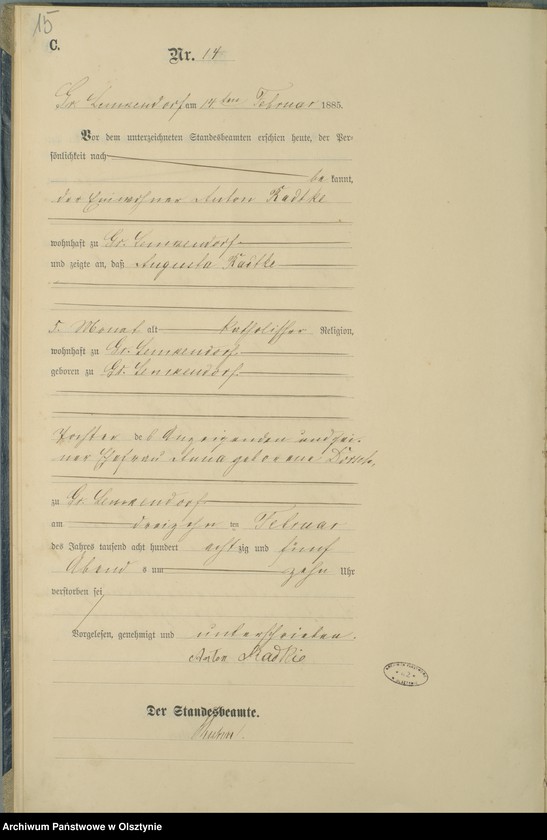 15
C.
Nr. 14
am 14ten Februar 1885.
Vor dem unterzeichneten Standesbeamten erschien heute, der Per=
sönlichkeit nach
be kannt,
der Einwohner Anton Radtke
wohnhaft zu Gr.
und zeigte an, daß Augusta Radtke
5 Monat alt katholischer Religion,
wohnhaft zu Gr.
geboren zu Gr.
Tochter des Anzeigenden und sei=
ner Ehefrau Anna geborene
zu Gr.
am dreizehn ten Februar
des Jahres tausend acht hundert acht zig und fünf
Abend s um zehn Uhr
verstorben sei
Vorgelesen, genehmigt und unterschrieben.
Anton Radtke
Der Standesbeamte.
Archiwum Państwowe w Olsztynie